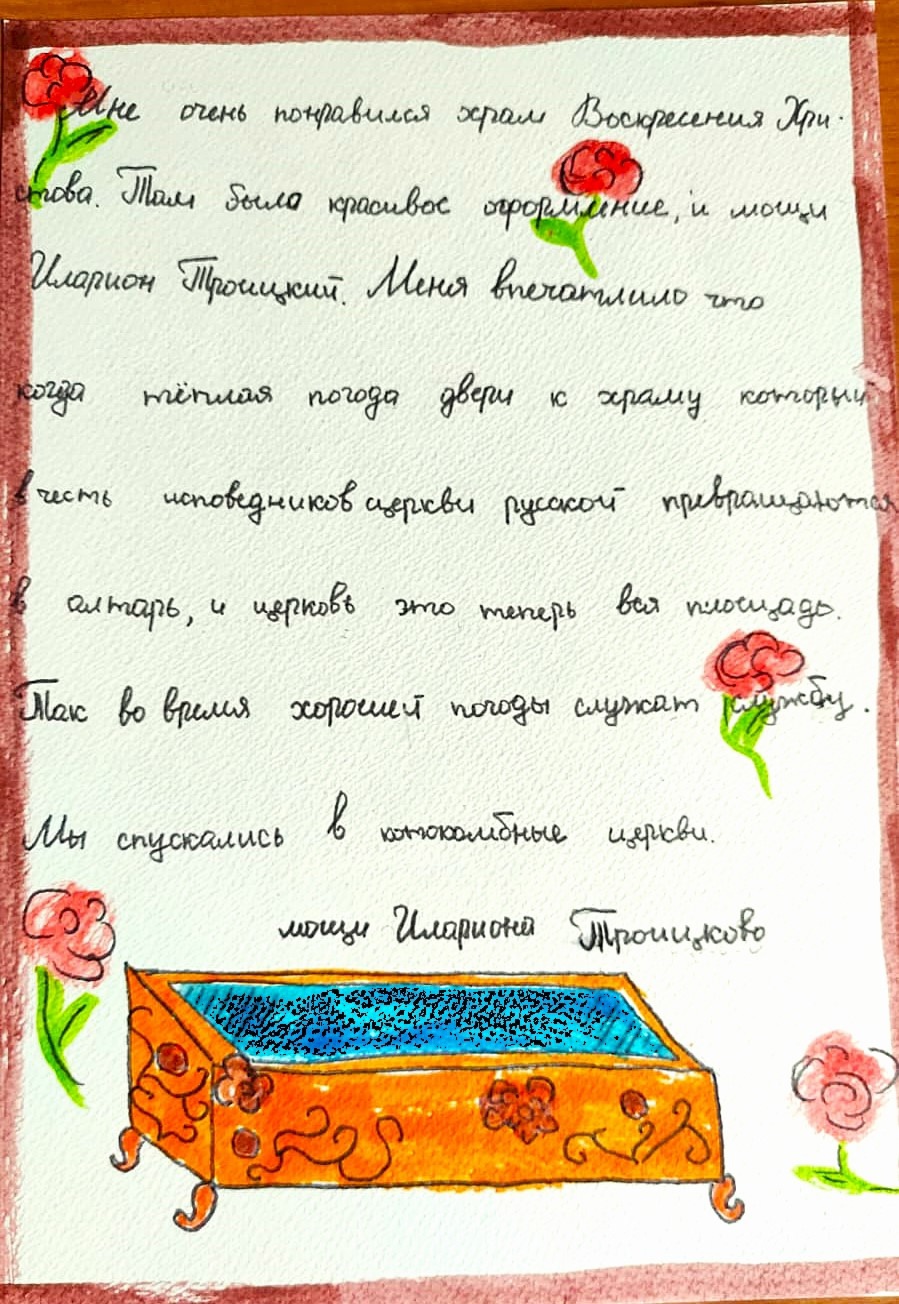 Мне очень понравился храм Воскресения Хри-
стова. Там была красивое оформление, и мощи
Иларион Троицкий. Меня впечатлило что
когда тёплая погода двери к храму который
в честь исповедников церкви русской превращаются
в алтарь, и церковь это теперь вся площадь.
Так во время хорошей погоды служат службу.
Мы спускались в катакомбные церкви.
мощи Илариона Троицково